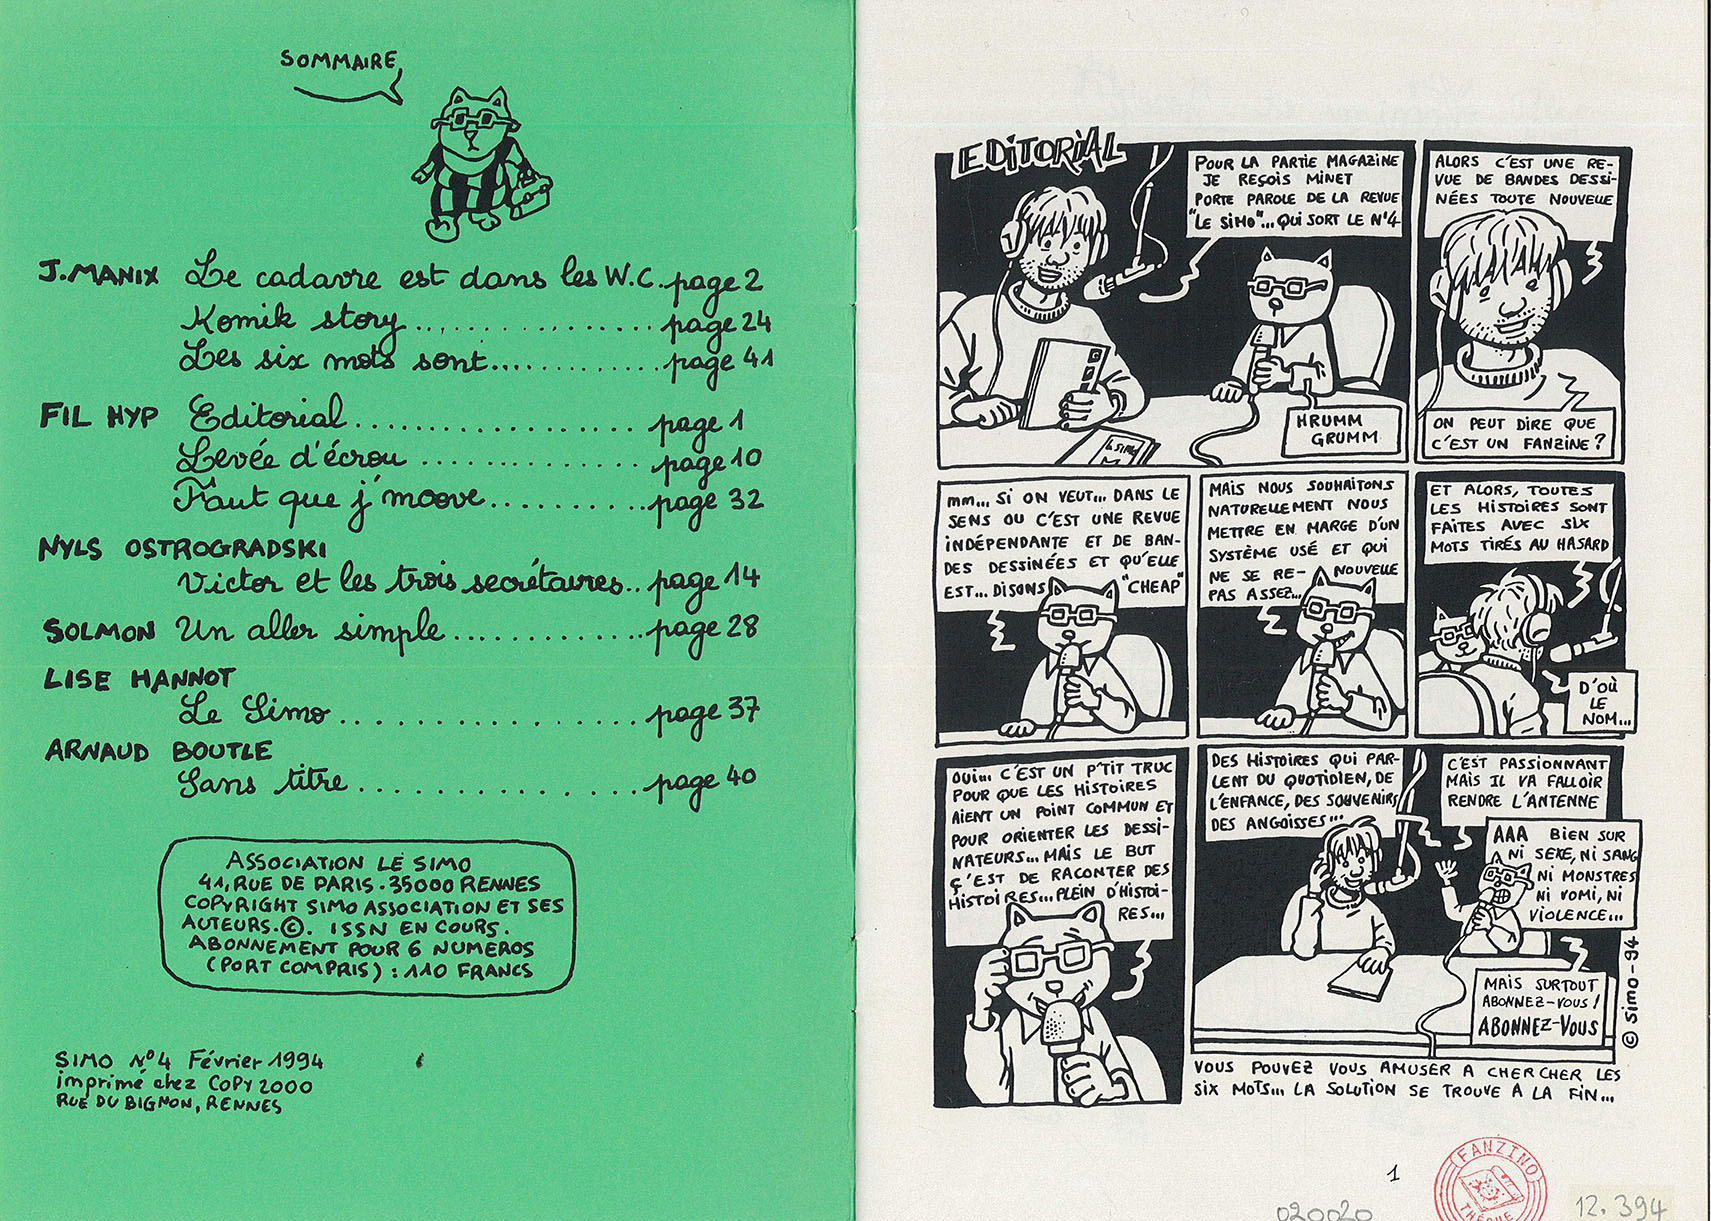 SOMMAIRE
J.MANIX Le cadavre est dans les W.C. page 2
Komik story................ page 24
Les six mots sont............ page 41
FIL HYP Editorial.................... page 1
Levée d'écrou .............. page 10
Faut que j'moove.......... page 32
NYLS OSTROGRADSKI
Victor et les trois secrétaires.. page 14
SOLMON Un aller simple ............. page 28
LISE HANNOT
Le Simo................ page 37
ARNAUD BOUTLE
Sans titre ............... page 40
ASSOCIATION LE SIMO
41, RUE DE PARIS.35000 RENNES
COPYRIGHT SIMO ASSOCIATION ET SES
AUTEURS.©. ISSN EN COURS.
ABONNEMENT POUR 6 NUMEROS
(PORT COMPRIS) : 110 FRANCS
SIMO N°4 Février 1994
imprimé chez COPY 2000
RUE DU BIGNON, RENNES
EDITORIAL
POUR LA PARTIE MAGAZINE
JE REÇOIS MINET
PORTE PAROLE DE LA REVUE
"LE SIMO"... QUI SORT LE N°4
HRUMM
GRUMM
LE SIMO
ALORS C'EST UNE RE-
VUE DE BANDES DESSI-
NÉES TOUTE NOUVELLE
ON PEUT DIRE QUE
C'EST UN FANZINE ?
mm... SI ON VEUT... DANS LE
SENS OU C'EST UNE REVUE
INDÉPENDANTE ET DE BAN-
DES DESSINÉES ET QU'ELLE
EST... DISONS "CHEAP"
MAIS NOUS SOUHAITONS
NATURELLEMENT NOUS
METTRE EN MARGE D'UN
SYSTÈME USÉ ET QUI
NE SE RE- NOUVELLE
PAS ASSEZ...
ET ALORS, TOUTES
LES HISTOIRES SONT
FAITES AVEC SIX
MOTS TIRÉS AU HASARD
D'OÙ
LE
NOM...
OUI... C'EST UN P'TIT TRUC
POUR QUE LES HISTOIRES
AIENT UN POINT COMMUN ET
POUR ORIENTER LES DESSI-
NATEURS... MAIS LE BUT
Ç'EST DE RACONTER DES
HISTOIRES... PLEIN D'HISTOI-
RES...
DES HISTOIRES QUI PAR-
LENT DU QUOTIDIEN, DE
L'ENFANCE, DES SOUVENIRS
DES ANGOISSES...
C'EST PASSIONNANT
MAIS IL VA FALLOIR
RENDRE L'ANTENNE
AAA BIEN SUR
NI SEXE, NI SANG
NI MONSTRES
NI VOMI, NI
VIOLENCE...
MAIS SURTOUT
ABONNEZ-VOUS !
ABONNEZ-VOUS
© SIMO-94
VOUS POUVEZ VOUS AMUSER A CHERCHER LES
SIX MOTS... LA SOLUTION SE TROUVE À LA FIN...
1
FANZINO
THÈQUE
020020
12.394